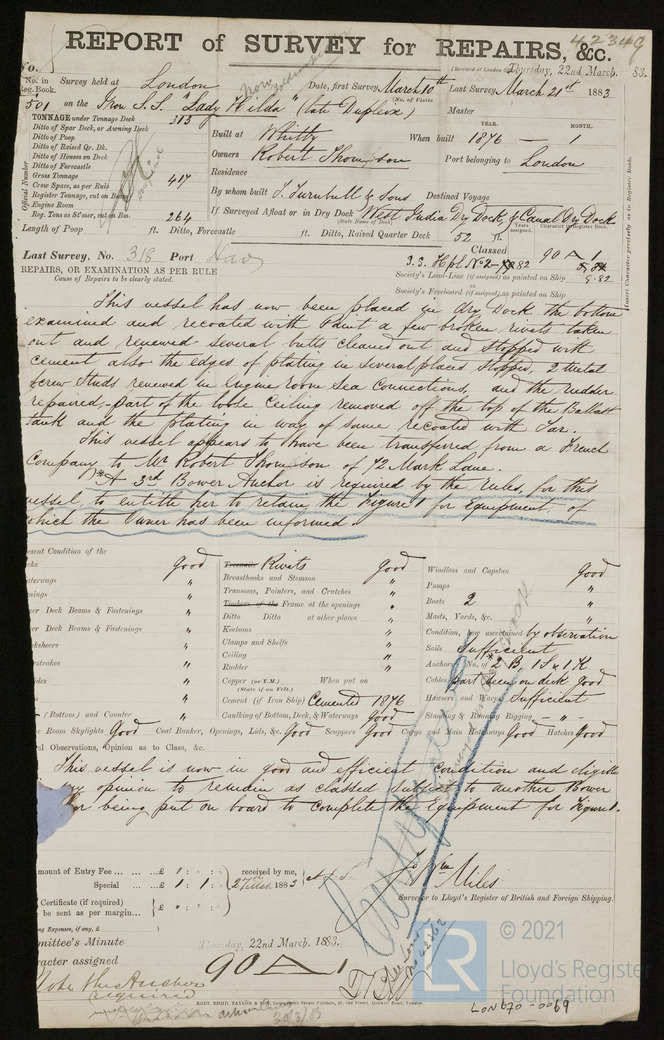 42349
REPORT of SURVEY for REPAIRS, &c.
(Received at London Thursday, 22nd March. 83.
No.
No. in Reg. Book. Survey held at London Date, first Survey March 10th Last Survey March 21st 1883
(No. of Visits
501 on the Iron S.S. "Lady Hilda" (late Dupleix) Master
TONNAGE under Tonnage Deck 313
Ditto of Spar Deck, or Awning Deck
Ditto of Poop
Ditto of Raised Qr. Dk.
Ditto of Houses on Deck
Ditto of Forecastle
Gross Tonnage 417
Crew Space, as per Rule
Register Tonnage, cut on Bm.
Engine Room
Reg. Tons as St'mer, cut on Bm. 264
Official Number
YEAR. MONTH.
Built at Whitby When built 1876 — 1
Owners Robert Thomson Port belonging to London
Residence
By whom built T. Turnbull & Sons Destined Voyage
If Surveyed Afloat or in Dry Dock West India Dry Dock & Canal Dry Dock
(State Name of Dock)
Length of Poop ft. Ditto, Forecastle ft. Ditto, Raised Quarter Deck 52 ft.
Years assigned. Character in Register Book.
Insert Character precisely as in Register Book.
Last Survey, No. 318 Port
Classed 90 A 1
REPAIRS, OR EXAMINATION AS PER RULE
Cause of Repairs to be clearly stated.
Society's Load-Line (if assigned) as painted on Ship
Society's Freeboard (if assigned) as painted on Ship
9.82
This vessel has now been placed in dry Dock the bottom
examined and recoated with Paint a few broken rivets taken
out and renewed several butts cleaned out and stopped with
cement also the edges of plating in several places stopped, 2 metal
screw studs renewed in Engine room Sea Connections, and the rudder
repaired,- part of the loose Ceiling removed off the top of the Ballast
tank and the plating in way of same recoated with Tar.
This vessel appears to have been transferred from a French
Company to Mr Robert Thomson of 72 Mark Lane.
A 3rd Bower Anchor is required by the rules, for this
vessel to entitle her to retain the Figure 1 for Equipment, of
which the Owner has been informed
Present Condition of the
Good
Deck Beams & Fastenings "
Deck Beams & Fastenings "
(Bottom) and Counter "
Treenails Rivets Good
Breasthooks and Stemson "
Transoms, Pointers, and Crutches "
Timbers of the Frame at the openings "
Ditto Ditto at other places "
Keelsons "
Clamps and Shelfs "
Ceiling "
Rudder "
Copper (or Y.M.) When put on
(State if on Felt.)
Cement (if Iron Ship) Cemented 1876
Caulking of Bottom, Deck, & Waterways Good
Windlass and Capstan Good
Pumps "
Boats 2 "
Masts, Yards, &c. "
Condition, how ascertained by observation
Sails Sufficient
Anchors No. of 2 B 1 S & 1 K
Cables part seen on deck good
Hawsers and Warps Sufficient
Standing & Running Rigging - " -
Room Skylights Good Coal Bunker, Openings, Lids, &c. Good Scuppers Good Cargo and Main Hatchways Good Hatches Good
Observations, Opinion as to Class, &c.
This vessel is now in good and efficient condition and eligible
my opinion to remain as classed subject to another Bower
being put on board to complete the Equipment for Figure 1.
Amount of Entry Fee ... ... ...£ 1 : :
Special ... ...£ 1 : 1 :
received by me,
1883
Certificate (if required)
be sent as per margin... £
Miles
Surveyor to Lloyd's Register of British and Foreign Shipping.
Committee's Minute Thursday, 22nd March, 1883.
Character assigned 90 A 1
Note the Anchor
required
30/3/83
LR
© 2021
Lloyd's Register
Foundation
LON670-0069